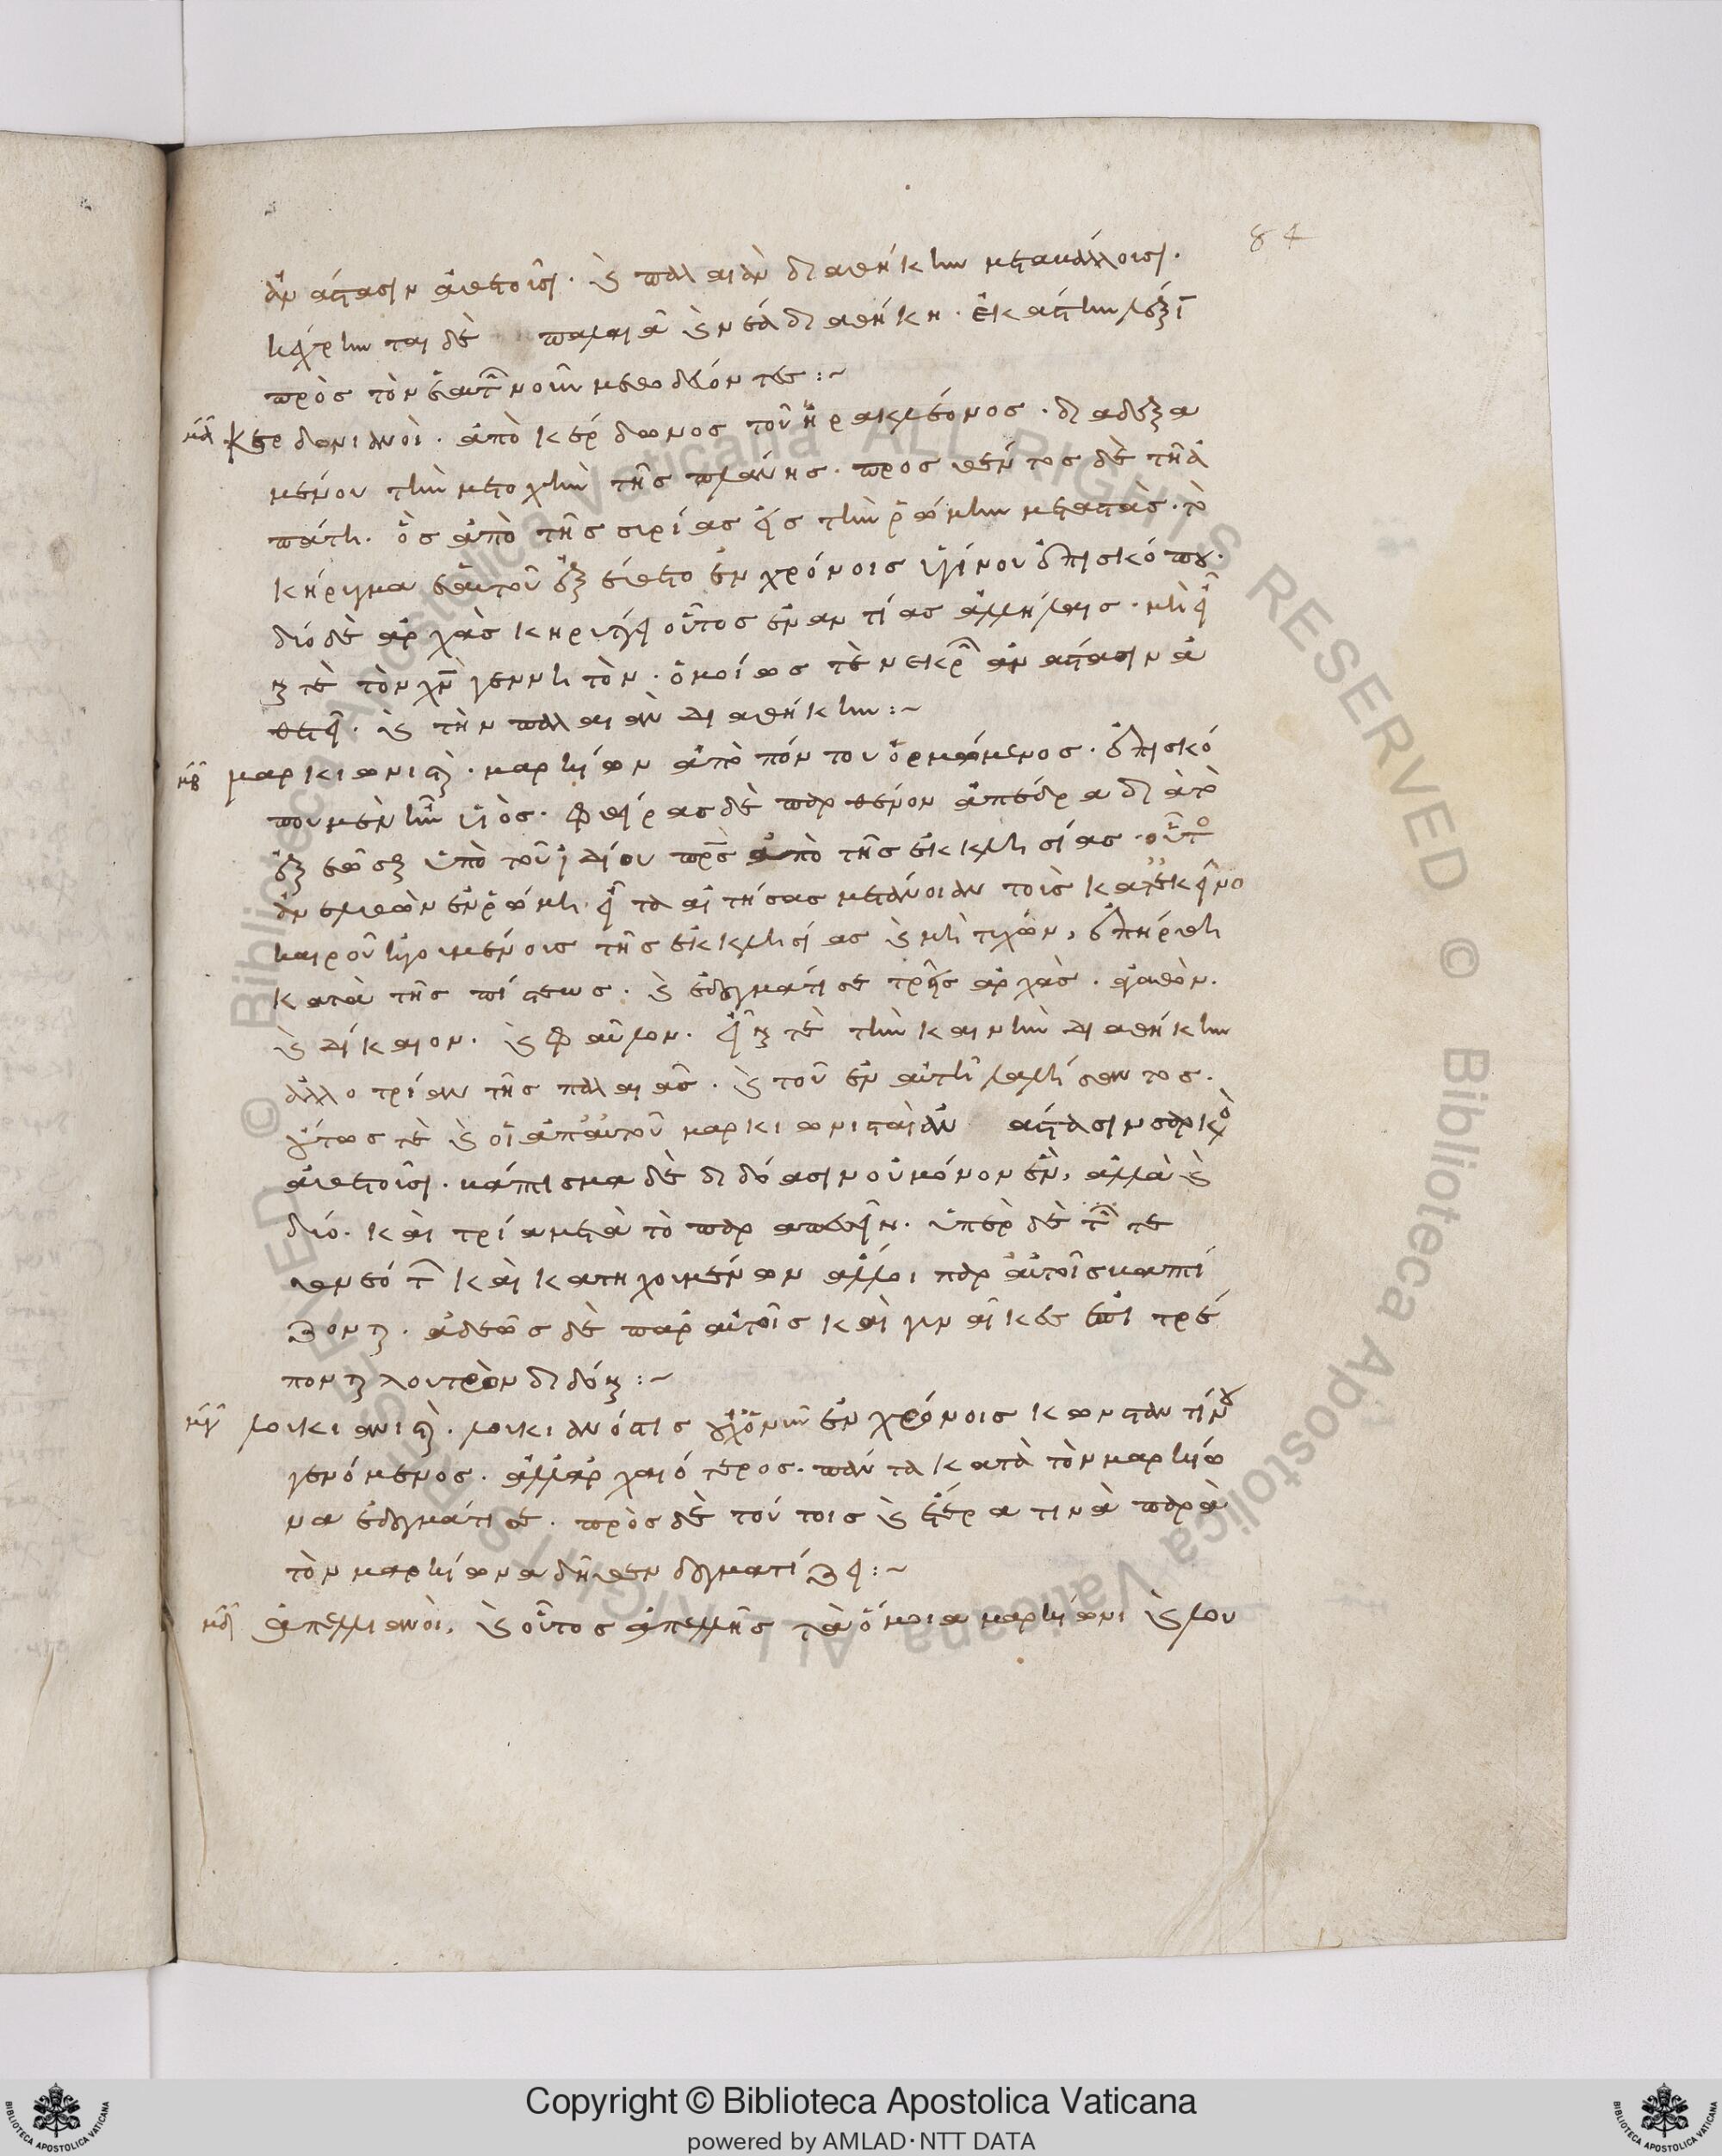 84
ἀνάστασιν ἀθετοῦσι. καὶ παλαιὰν διαθήκην μεταβάλλουσι.
κέχρηνται δὲ παλαιᾶ καὶ νέα διαθήκη. ἑκάστην λέξιν
πρὸς τὸν ἑαυτῶν νοῦν μεθοδεύοντες :~
μα κερδωνιανοὶ. ἀπὸ κέρδωνος τοῦ ἡρακλέονος. διαδεξα
μένου τὴν μετοχὴν τῆς πλάνης. προσθέντος δὲ τῆ ἀ
πάτη. ὃς ἀπὸ τῆς συρίας εἰς τὴν ῥώμην μεταστὰς. τὸ
κήρυγμα ἑαυτοῦ ἐξέθετο ἐν χρόνοις ὑγίνου ἐπισκόπου.
δύο δὲ ἀρχὰς κηρύττει οὗτος ἐναντίας ἀλλήλαις. μὴ εἶ
ναί τε τὸν χν γεννητὸν. ὁμοίως τὲ νεκρῶν ἀνάστασιν ἀ
θετεῖ. καὶ τὴν παλαιὰν διαθήκην :~
μβ μαρκιωνισταὶ. μαρκίων ἀπὸ πόντου ὁρμώμενος. ἐπισκό
που μὲν ἦν υἱὸς. φθείρας δὲ παρθένον ἀπέδρα διὰ τὸ
ἐξεῶσθαι ὑπὸ τοῦ ἰδίου πρς ἀπὸ τῆς ἐκκλησίας. οὗτο
ἀνελθὼν ἐν ῥώμη. εἶτα αἰτήσας μετάνοιαν τοῖς κατ' ἐκεῖνο
καιροῦ ἡγουμένοις τῆς ἐκκλησίας καὶ μὴ τυχὼν, ἐπήρθη
κατὰ τῆς πίστεως. καὶ ἐδογμάτισε τρεῖς ἀρχὰς. ἀγαθὸν.
καὶ δίκαιον. καὶ φαῦλον. εἶναί τε τὴν καινὴν διαθήκην
ἀλλοτρίαν τῆς παλαιᾶς. καὶ τοῦ ἐν αὐτῆ λαλήσαντος.
οὗτος τὲ καὶ οἱ ἀπ' αὐτοῦ μαρκιωνισταὶ ἀν άστασιν σαρκὸ
ἀθετοῦσι. βάπτισμα δὲ διδόασιν οὐ μόνον ἓν, ἀλλὰ καὶ
δύο. καὶ τρία μετὰ τὸ παραπεσεῖν. ὑπὲρ δὲ τῶν τε
θνεότων καὶ κατηχουμένων ἄλλοι παρ' αὐτοῖς βαπτί
ζονται. ἀδεῶς δὲ παρ' αὐτοῖς καὶ γυναῖκες ἐπιτρέ
πονται λουτρὸν διδόναι :~
μγ λουκιανισταὶ. λουκιανός τις οὐχ ὁ νῦν ἐν χρόνοις κωνσταντίνου
γενόμενος. ἀλλ' ἀρχαιότερος. πάντα κατὰ τὸν μαρκίω
να ἐδογμάτισε. πρὸς δὲ τούτοις καὶ ἕτερα τινὰ παρὰ
τὸν μαρκίωνα δῆθεν δογματίζει :~
μδ ἀπελλιανοὶ. καὶ οὗτος ἀπελλῆς τὰ ὅμοια μαρκίωνι καὶ λου